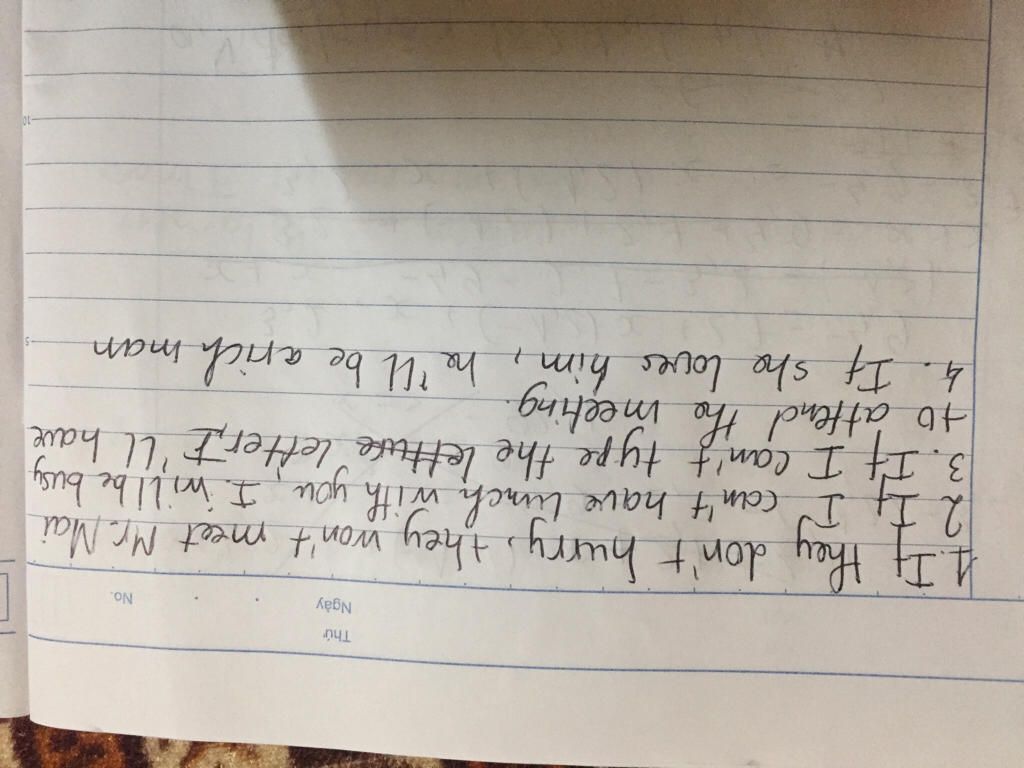 Thứ
Ngày No.
1. If they don't hurry, they won't meet Mr. Mai
2 If I can't have lunch with you, I will be busy
3. If I can't type the letture letter, I'll have
to attend the meeting.
4. If she loves him, he'll be a rich man
5
10